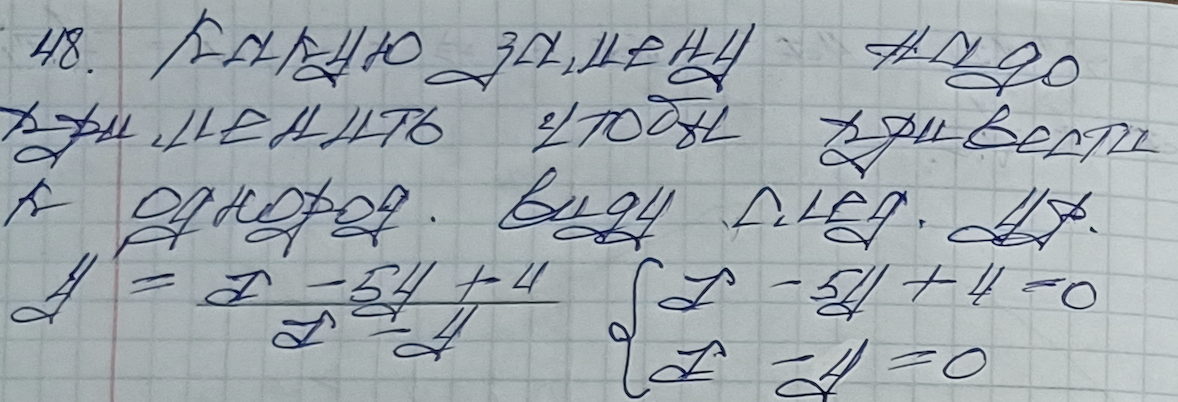 48. Какую замену надо
применить чтобы привести
к однород. виду след. ур.
y = \frac{x - 5y + 4}{x - y} \begin{cases} x - 5y + 4 = 0 \\ x - y = 0 \end{cases}